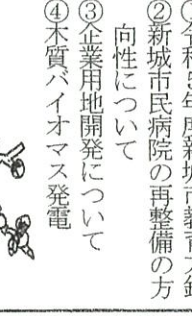 ①令和5年度新城市教育大綱
②新城市民病院の再整備の方
向性について
③企業用地開発について
④木質バイオマス発電